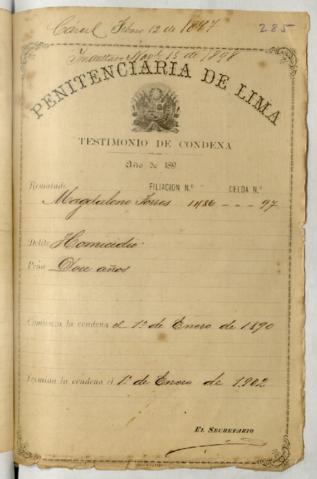 Cárcel Febro 12 de 1897
285
Mayo 15 de 1898
PENITENCIARIA DE LIMA
TESTIMONIO DE CONDENA
Año de 189
Rematado FILIACION N.º CELDA N.º
Magdaleno Torres 1486 - - - 97
Delito Homicidio
Pena Doce años
Comienza la condena el 1º de Enero de 1890
Termina la condena el 1º de Enero de 1902
EL SECRETARIO